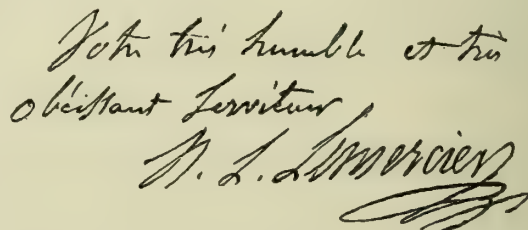 Votre très humble et très
obéissant serviteur
N. L. Lemercier